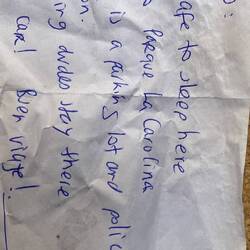 :
afe to sleep here
Parque La Carolina
is a parking lot and polic
on.
ing dudes stay there
car! Buen viaje!